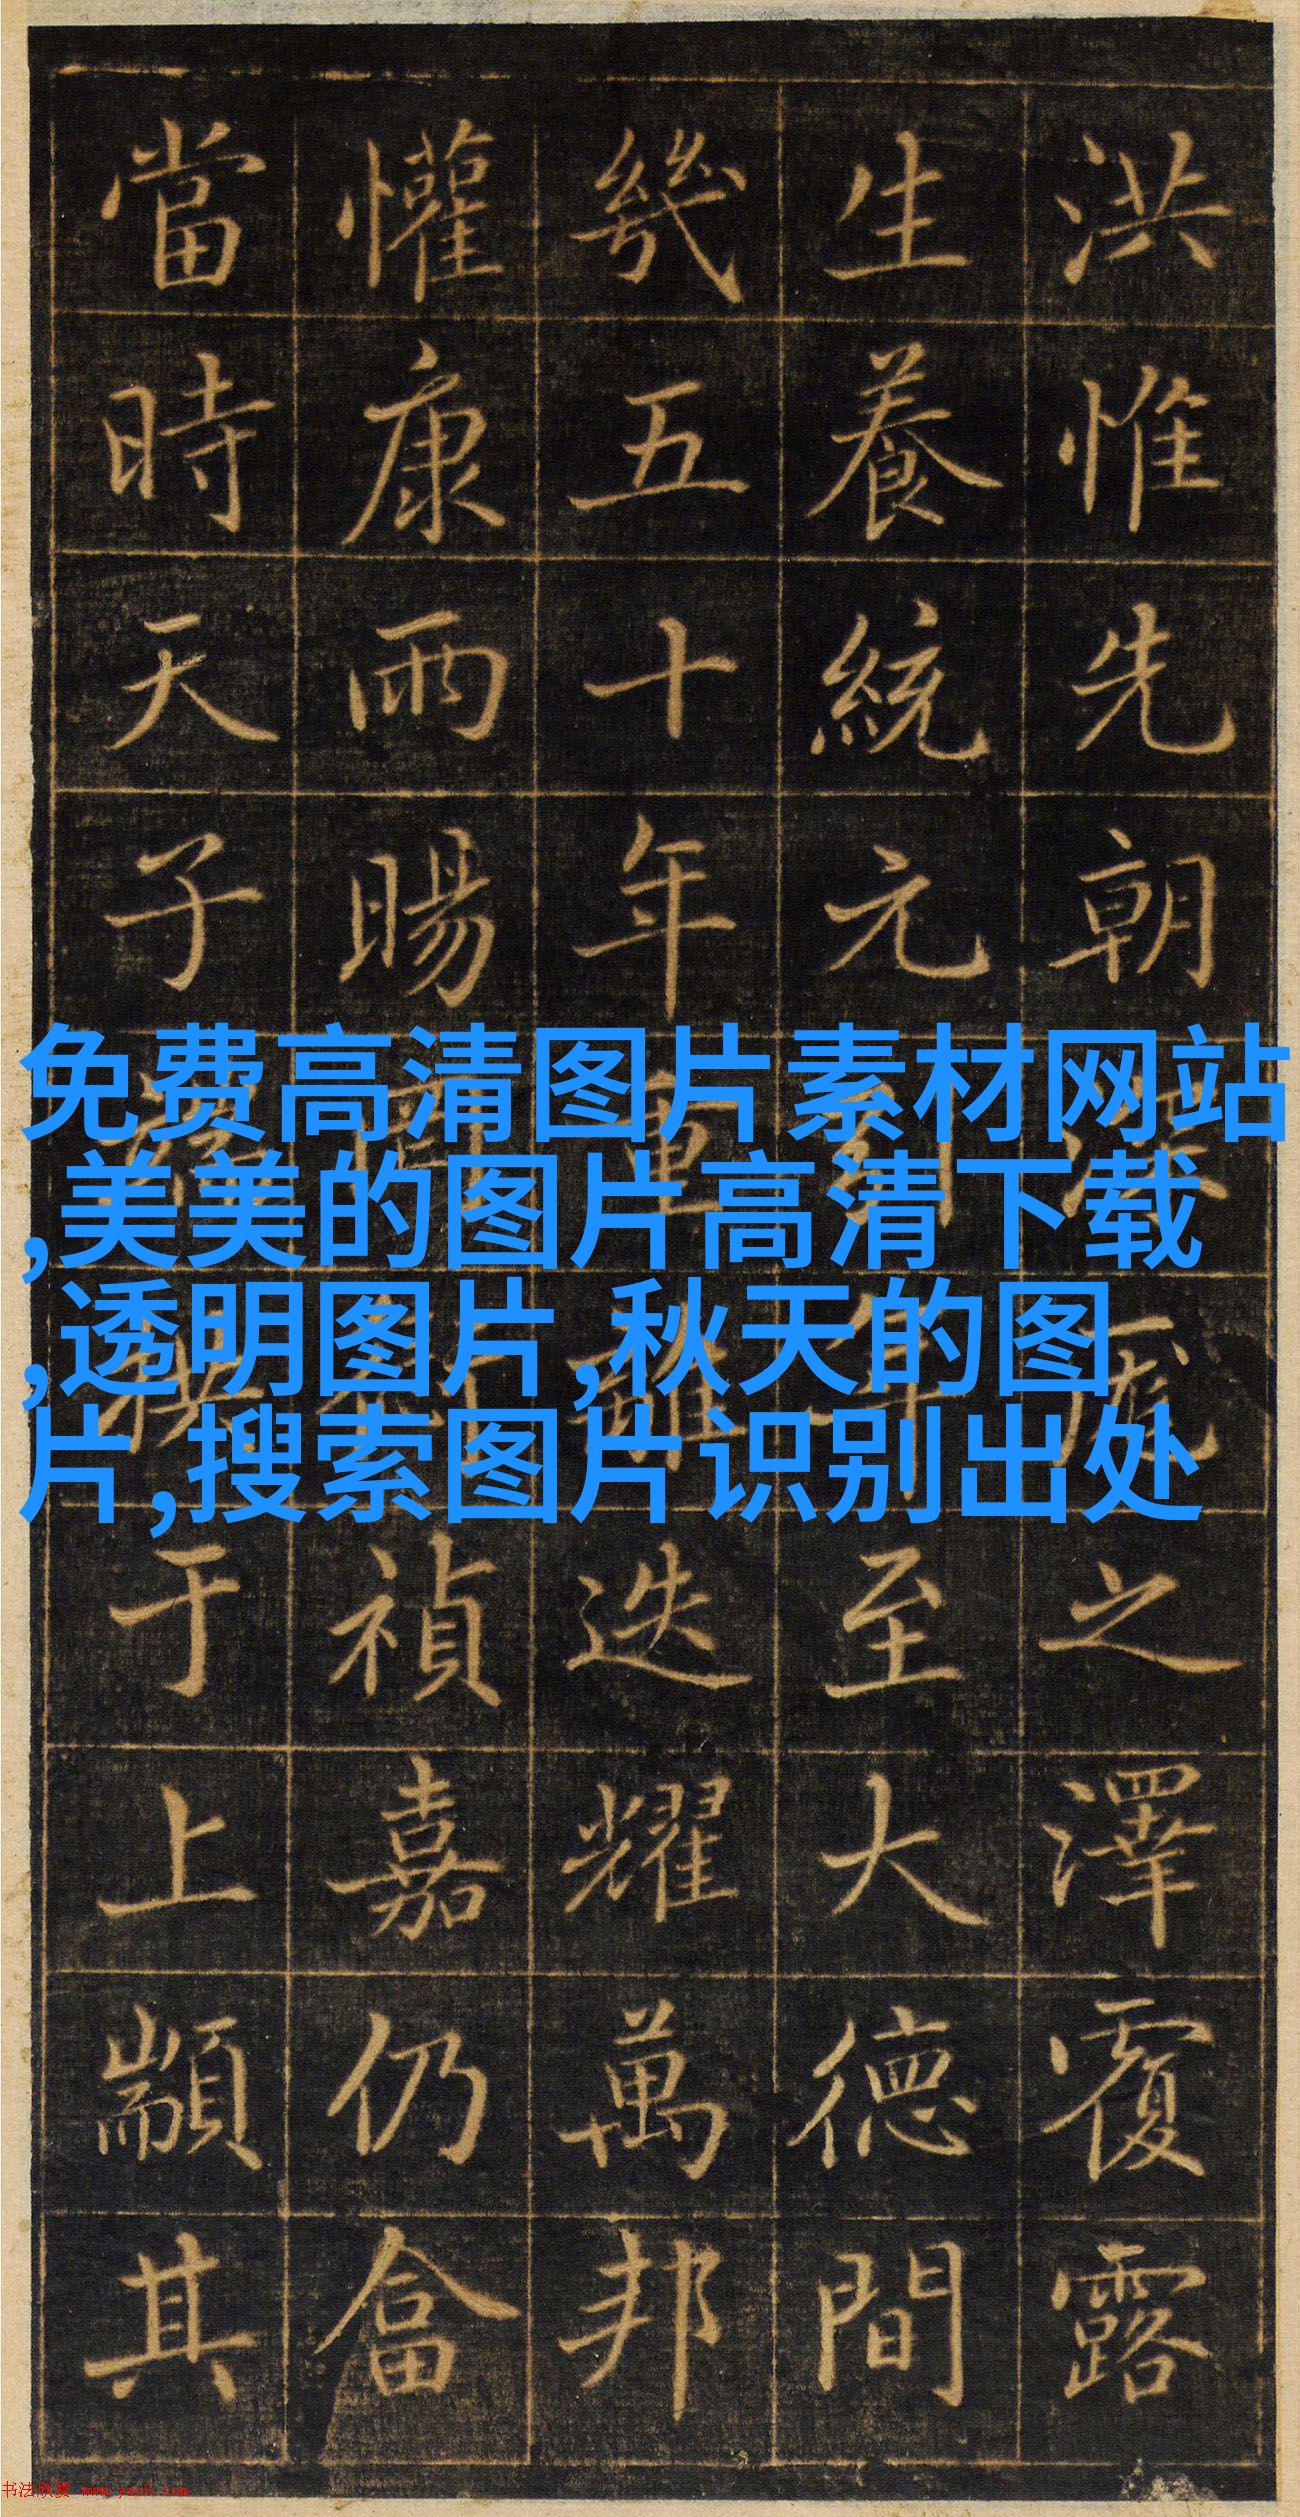 洪惟先朝之澤覆露
生養統元至大德間
幾五十年重離迭耀萬邦
懽康雨暘禎嘉仍畣
當時天子于上顒其
免费高清图片素材网站
,美美的图片高清下载
,透明图片,秋天的图
片,搜索图片识别出处
书法欣赏 www.yac8.com